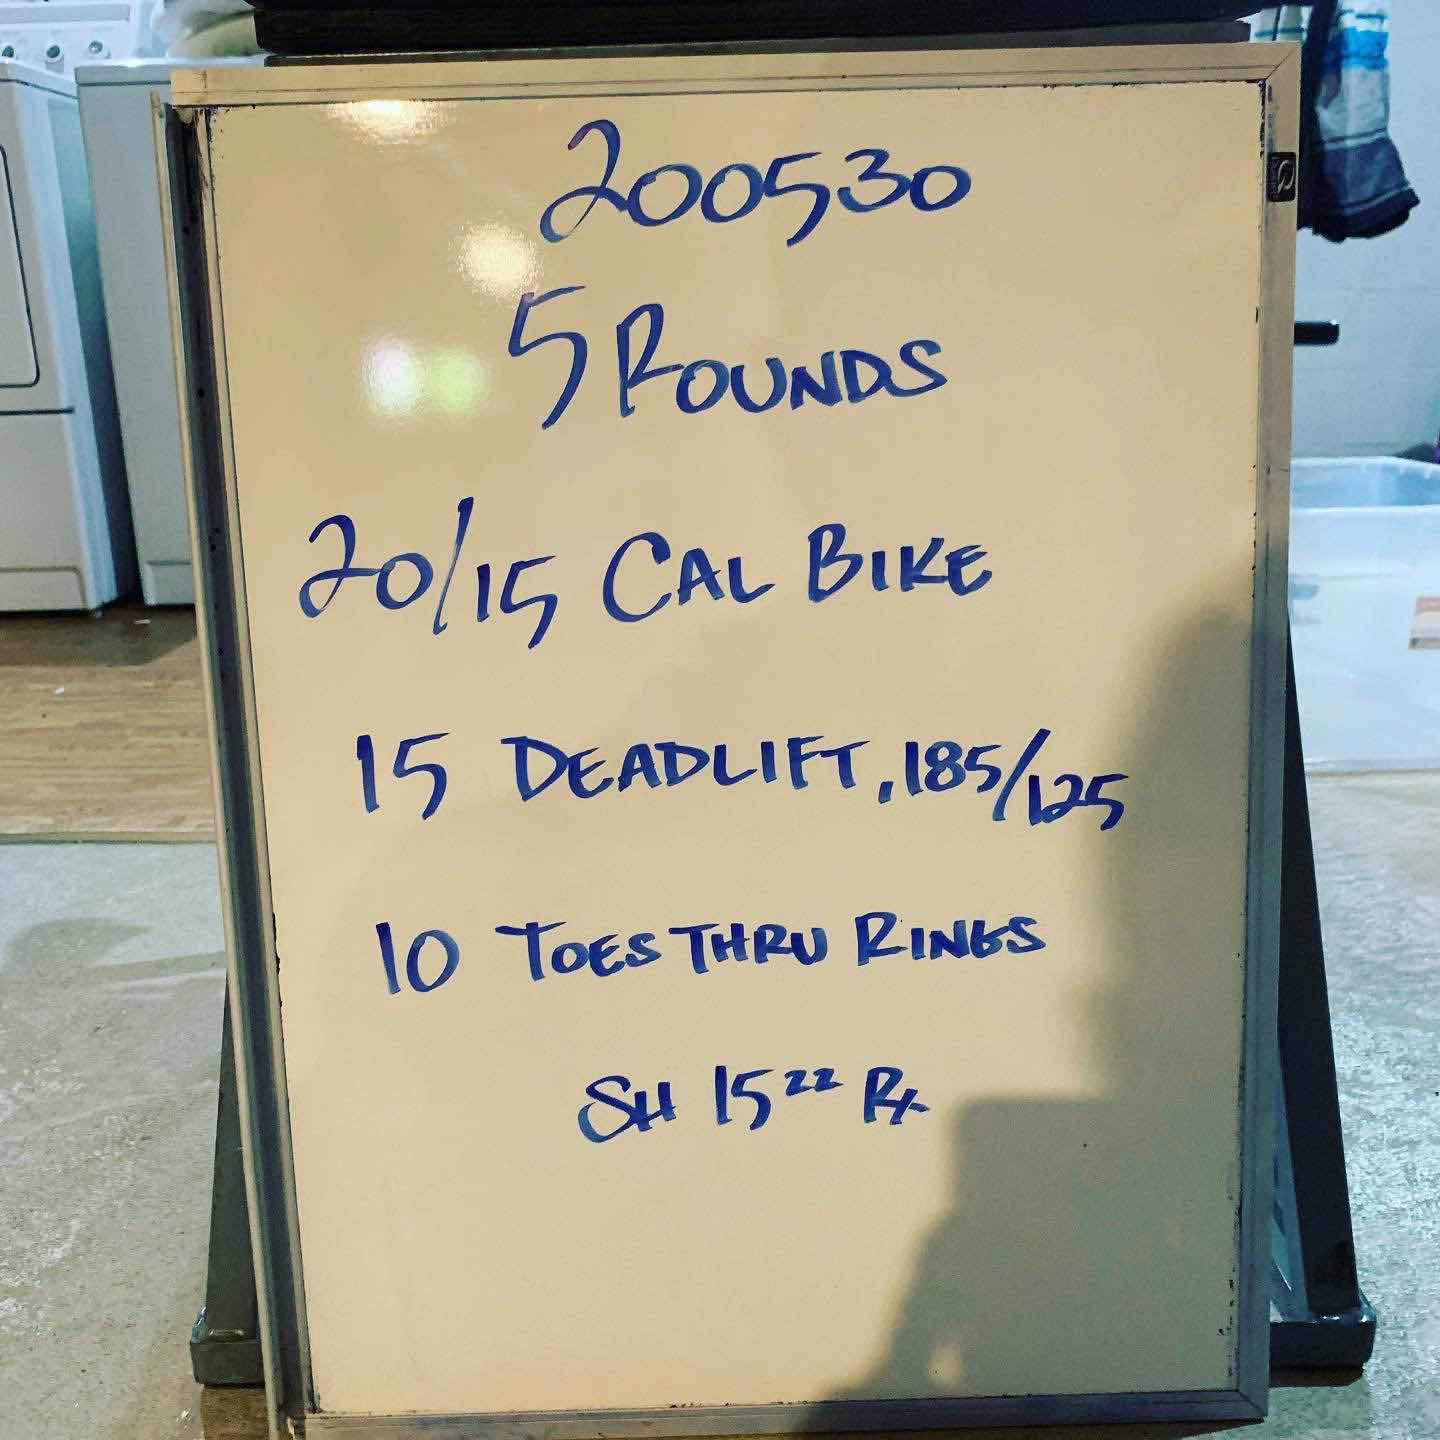 200530
5 ROUNDS
20/15 CAL BIKE
15 DEADLIFT, 185/125
10 TOES THRU RINGS
SH 15²² Rx